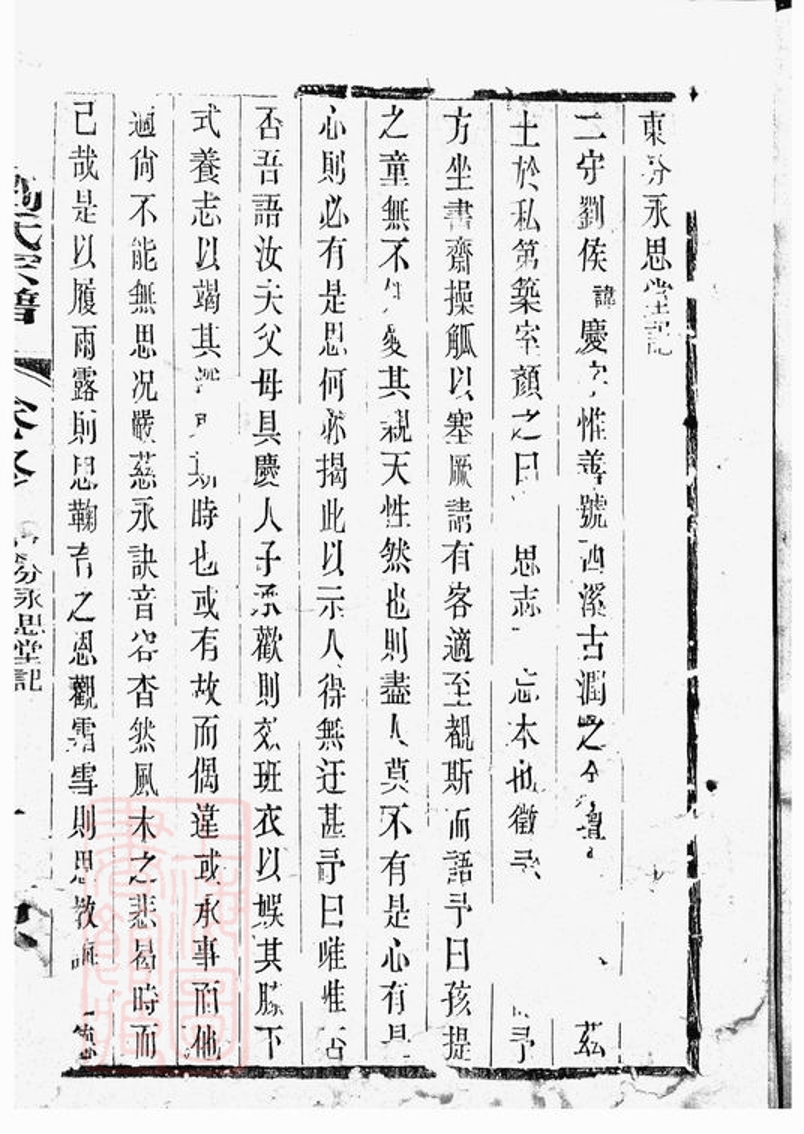 東分永思堂記
二守劉侯諱慶字惟善號西溪古潤之 茲
土於私第築室顏之曰 思志 忘本也徵予 予
方坐書齋操觚以塞厥請有客適至覩斯而語予曰孩提
之童無不 愛其親天性然也則盡人莫不有是心有是
心則必有是思何必揭此以示人得無迂甚予曰唯唯否
否吾語汝夫父母具慶人子承歡則效班衣以娛其膝下
式養志以竭其 時也或有故而偶違或承事而他
適尚不能無思况嚴慈永訣音容杳然風木之悲曷時而
已哉是以履雨露則思鞠育之恩觀霜雪則思教誨 德
劉氏宗譜 分永思堂記